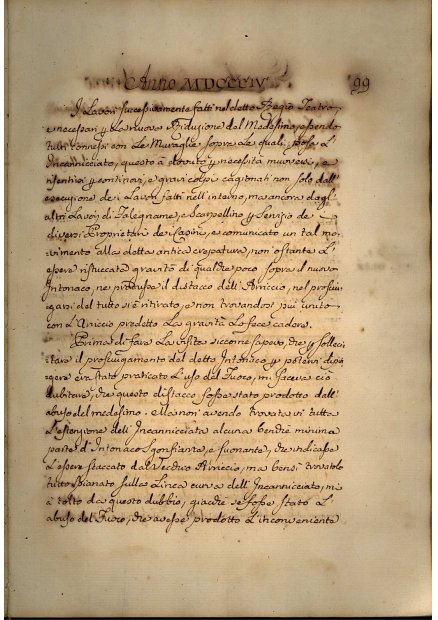 Anno MDCCCIV
99
I Lavori successivamente fatti nel detto Regio Teatro,
e necessarj p la nuova Riduzione del Medesimo, essendo
tutti connessi con le Muraglie sopra le quali posa l'
Incannicciato, questo à dovuto p necessità muoversi, e
risentirsi p continovi, e gravi colpi cagionati non solo dall'
esecuzione dei Lavori fatti nell'interno, ma ancora dagl'
altri Lavori di Falegname, e Scarpellino p servizio de
diversi Proprietarj de Casini, e comunicato un tal mo-
vimento alla detta antica crepatura, non ostante l'
essere ristuccata gravitò di qualche poco sopra il nuovo
Intonaco, ne produsse il distacco dell'Arriccio, nel prosciu-
garsi del tutto si è ritirato, e non trovandosi più unito
con l'Arriccio predetto la gravità lo fece cadere.
Prima di fare la visita siccome sapevo, che p solleci-
tare il prosciugamento del detto Intonaco p potervi dipi-
gere era stato praticato l'uso del Fuoco, mi faceva ciò
dubitare, che questo distacco fosse stato prodotto dall'
abuso del medesimo. Ma non avendo trovata in tutta
l'estensione dell'Incannicciata alcuna benchè minima
parte d'Intonaco sgonfiante, e suonante, che indicasse
l'essere staccato dal Vecchio Arriccio, ma bensì trovatolo
tutto spianato sulla Linea curva dell'Incannicciato, mi
à tolto da questo dubbio, giacchè se fosse stato l'
abuso del Fuoco, che avesse prodotto l'inconveniente